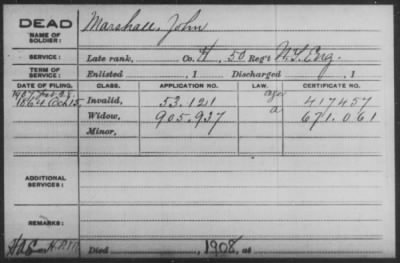 DEAD Marshall, John
NAME OF SOLDIER:
SERVICE: Late rank, Co. H, 50 Reg't N.Y. Eng.
TERM OF SERVICE: Enlisted , 1 Discharged , 1
DATE OF FILING. CLASS. APPLICATION NO. LAW. CERTIFICATE NO.
1864 Oct 15, Invalid, 53.121 age 417457
Widow, 905.937 a 671.061
Minor,
ADDITIONAL SERVICES:
REMARKS:
Died 1908, at